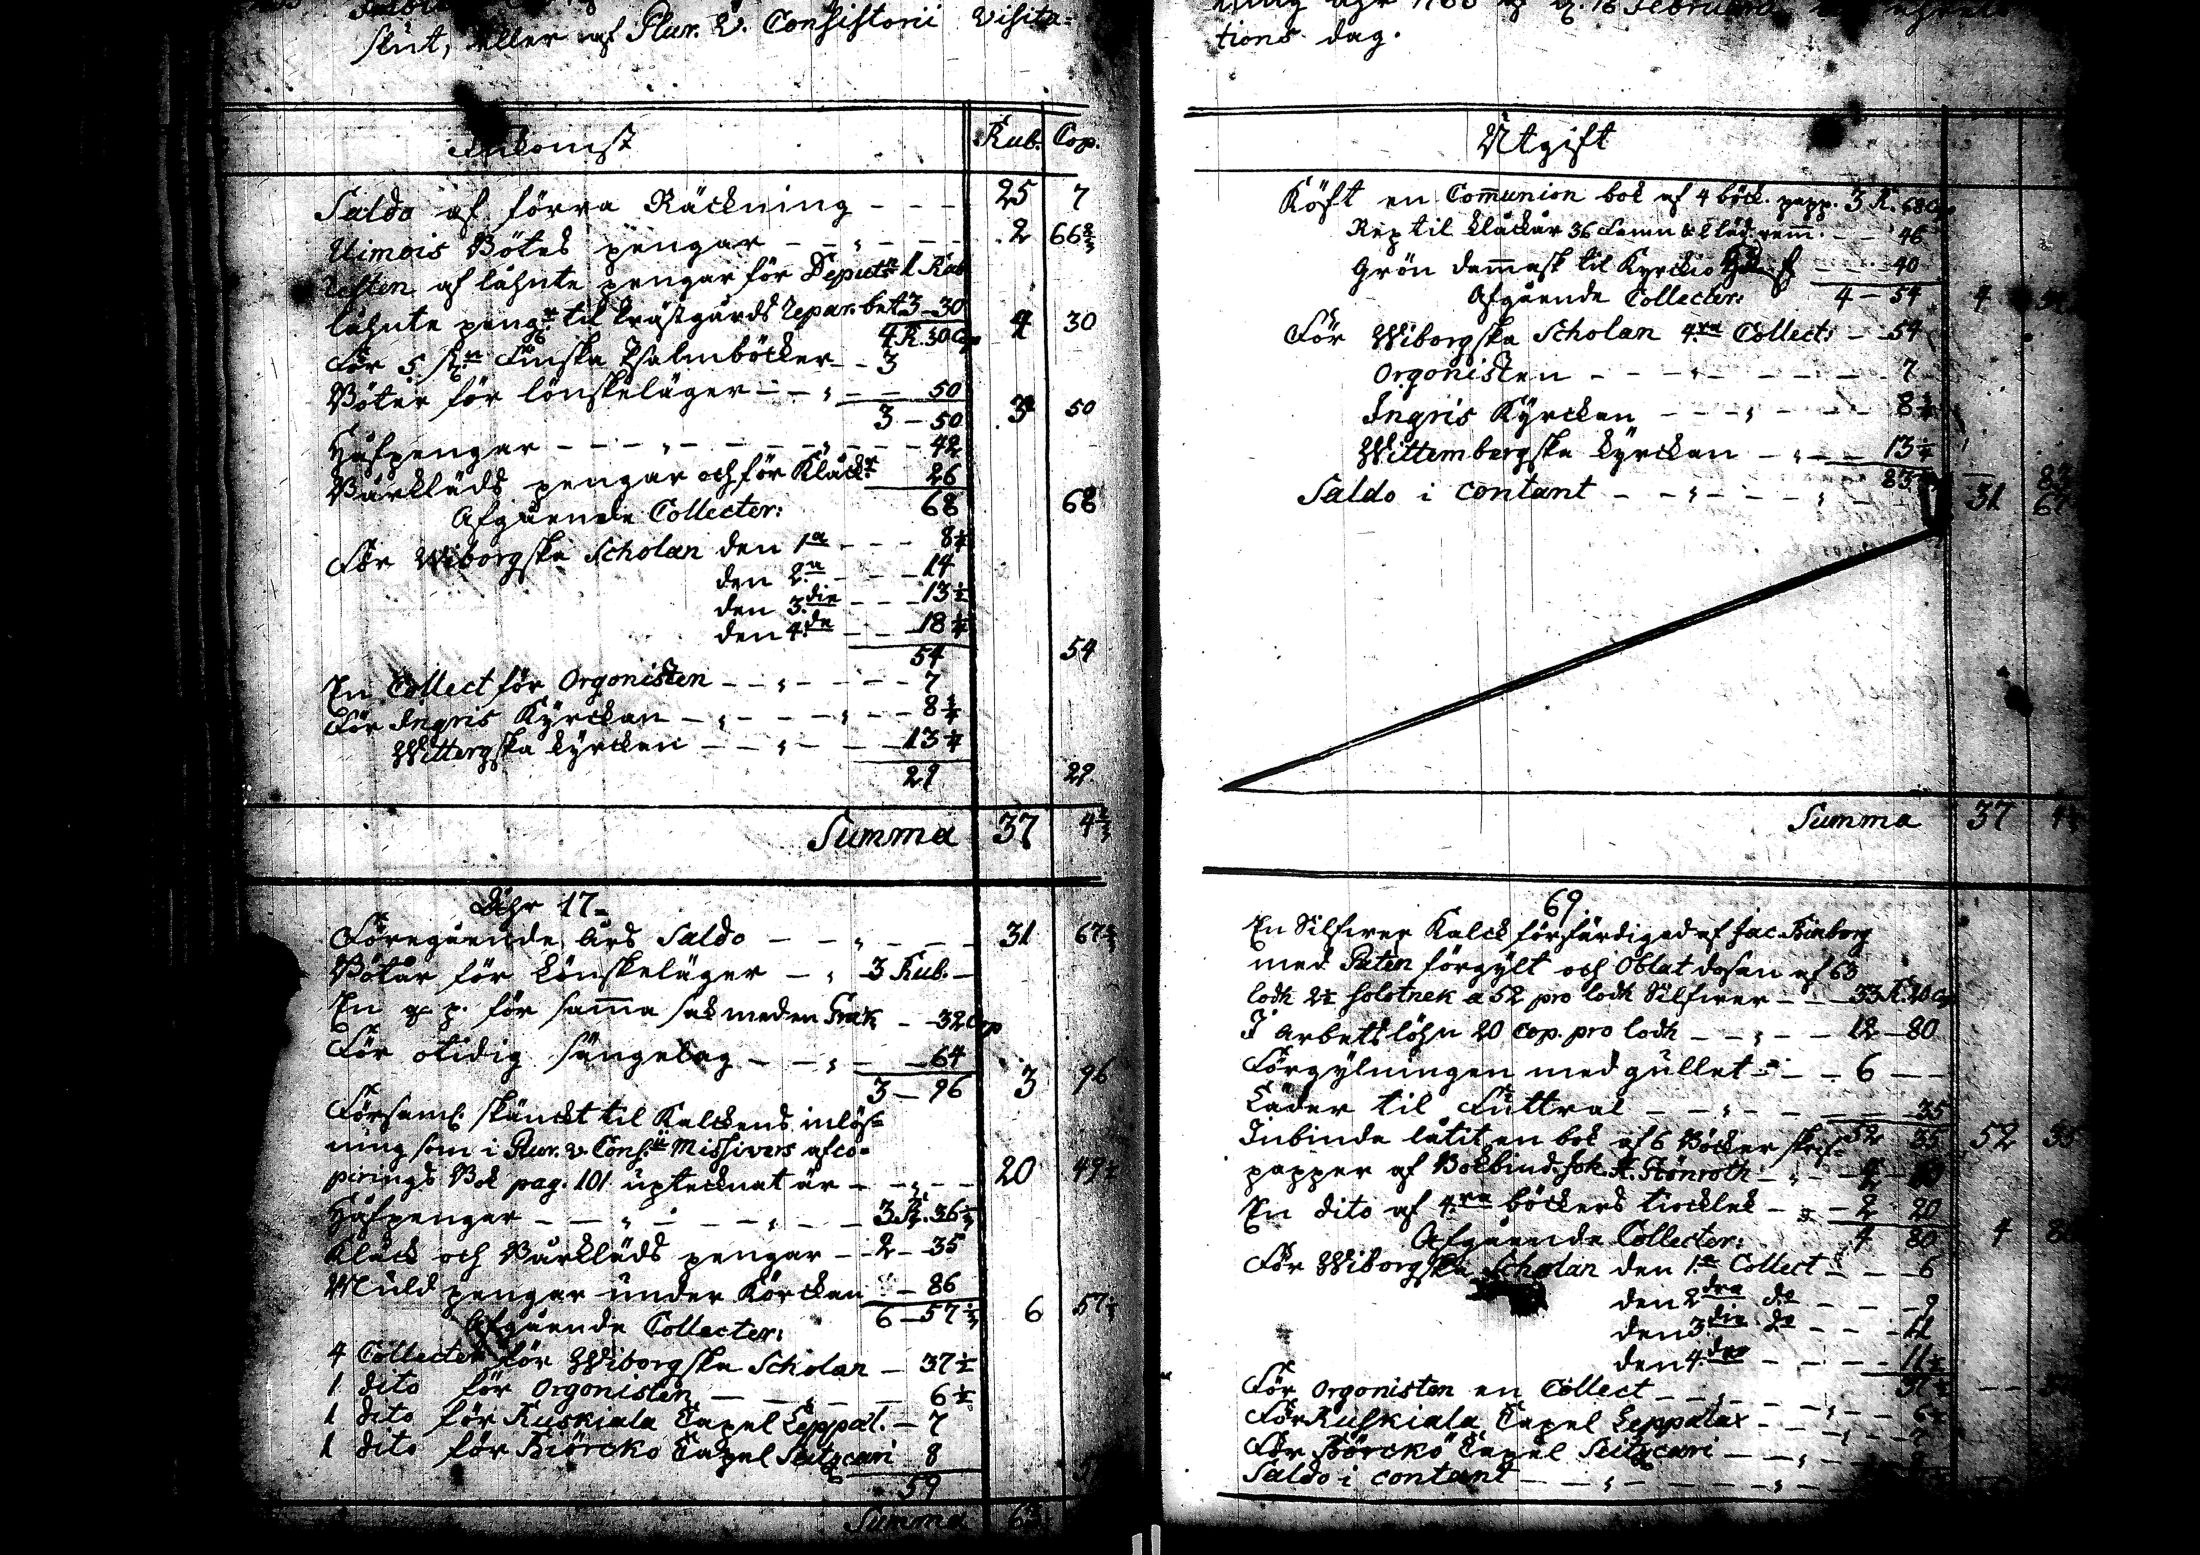 slut, eller af Plur. V. Consistorii Visita=
Inkomst Rub. Cop.
Saldo af förra Räckning - - - 25 7
Uimois Bötes pengar - - - - - 2 66 2/3
Resten af låhnte pengar för Deputn 1 Rub
låhnte pengr til Prästgårds repar. bet 3-30
4 R. 30 Cop 4 30
För 5 st. Finska Psalmböcker - - 3
Böter för lönskeläger - - - - 50
3 - 50 3 50
Håfpengar - - - - - - - - 42
Bårkläds pengar och för Kläckr 26
68 68
Afgående Collecter:
För Wiborgska Scholan den 1a - - - 8 1/4
den 2a - - - 14
den 3die - - - 13 1/2
den 4de - - - 18 1/4
54 54
En Collect för Orgonisten - - - - - 7
För Ingris Kyrckan - - - - - - 8 1/4
Wittergska kyrckan - - - - - 13 3/4
29 29
Summa 37 4 2/3
Åhr 17-
Föregående års Saldo - - - - - 31 67 2/3
Bötår för Lönskeläger - - 3 Rub. -
En q. p. för samma sak meden Frak - 32 Cop
För otidig sängelag - - - - 64
3 - 96 3 96
Församl. skänckt til Kalckens inlös=
ning som i Plur. V. Cons.ii Missivers afco=
pierings Bok pag. 101 uptecknat är - - - 20 49 1/2
Håfpengar - - - - - - - 3 R. 36 1/2
Kläck och Bårkläds pengar - - 2 - 35
Muld pengar under Körckan - 86
6 - 57 1/2 6 57 1/2
Afgående Collecter:
4 Collecter för Wiborgska Scholan - 37 1/2
1 dito för Orgonisten - - - - 6 1/2
1 dito för Ruskiala Capel Leppal. - 7
1 dito för Biörckö Capel Seitzcari 8
59
Summa
tions dag.
Utgift
Köft en Communion bok af 4 böck. papp. 3 R. 68 Cop
Rep til kläckår 36 famn
46
Grön dammask til Kyrckio - - - 40
4 - 54 4
Afgående Collecter:
För Wiborgska Scholan 4ra Collect: - - 54
Orgonisten - - - - - - - 7
Ingris Kyrckan - - - - - - 8 1/4
Wittembergska kyrckan - - - - 13 3/4
83 83
Saldo i contant - - - - - - 31 67
Summa 37
69.
En Silfwer Kalck förfärdigad af Jac. Finborg
med Paten förgylt och Oblat dosan af 63
lodh 2 1/2 solotnek a 52 pro lodh Silfwer - - 33 R. 20 Cop
I arbetslöhn 20 Cop. pro lodh - - - - 12 - 80
Förgylningen med gullet - - - - 6 - -
Läder til Futtral - - - - - - 35
52 35 52 35
Inbinda låtit en bok af 6 Böcker skrif-
papper af Bokbind. Joh. H. Stönroth - - -
En dito af 4ra böckers tiocklek - - - 2 20
4 80 4 80
Afgående Collecter:
För Wiborgska Scholan den 1a Collect - - - 6
den 2dra do - - - 9
den 3die do - - - 11
den 4dra - - - 11 1/2
För Orgonisten en Collect - - - - - 6 1/2
För Ruskiala Capel Leppalax - - - - 7
För Börckö Capel Seitzcari - - - -
Saldo i contant - - - - - -